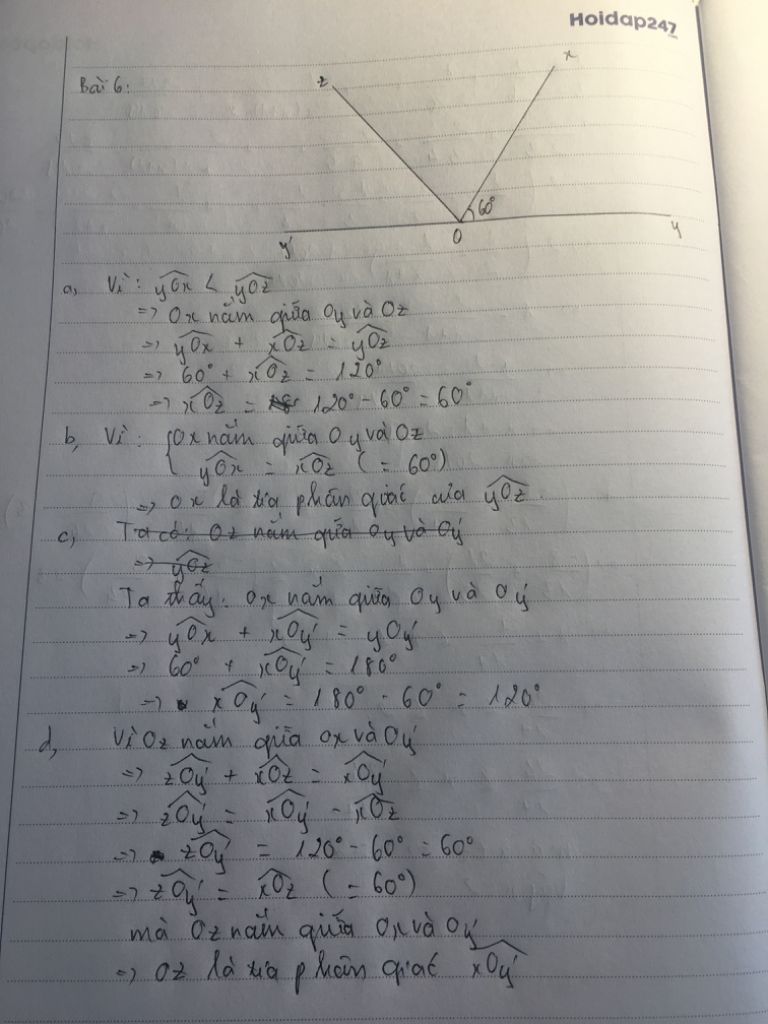 Hoidap247
Bài 6:
z
x
60°
y'
O
y
a, Vì: yOx < yOz
=> Ox nằm giữa Oy và Oz
=> yOx + xOz = yOz
=> 60° + xOz = 120°
=> xOz = 120° - 60° = 60°
b, Vì: { Ox nằm giữa Oy và Oz
yOx = xOz ( = 60°)
=> Ox là tia phân giác của yOz.
c, Ta có: Oz nằm giữa Oy và Oy'
=> yOz
Ta thấy: Ox nằm giữa Oy và Oy'
=> yOx + xOy' = yOy'
=> 60° + xOy' = 180°
=> xOy' = 180° - 60° = 120°
d, Vì Oz nằm giữa Ox và Oy'
=> zOy' + xOz = xOy'
=> zOy' = xOy' - xOz
=> zOy' = 120° - 60° = 60°
=> zOy' = xOz ( = 60°)
mà Oz nằm giữa Ox và Oy'
=> Oz là tia phân giác xOy'